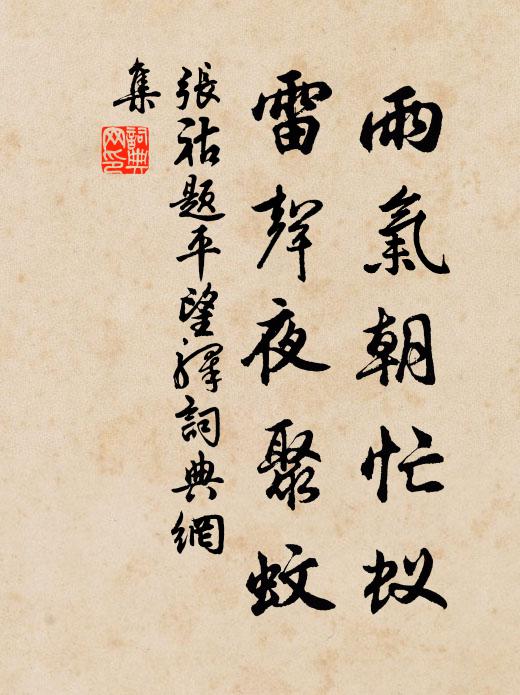 雨氣朝忙蚁
雷聲夜聚蚊
張祜題平望驛詞典網
集
詞典网印